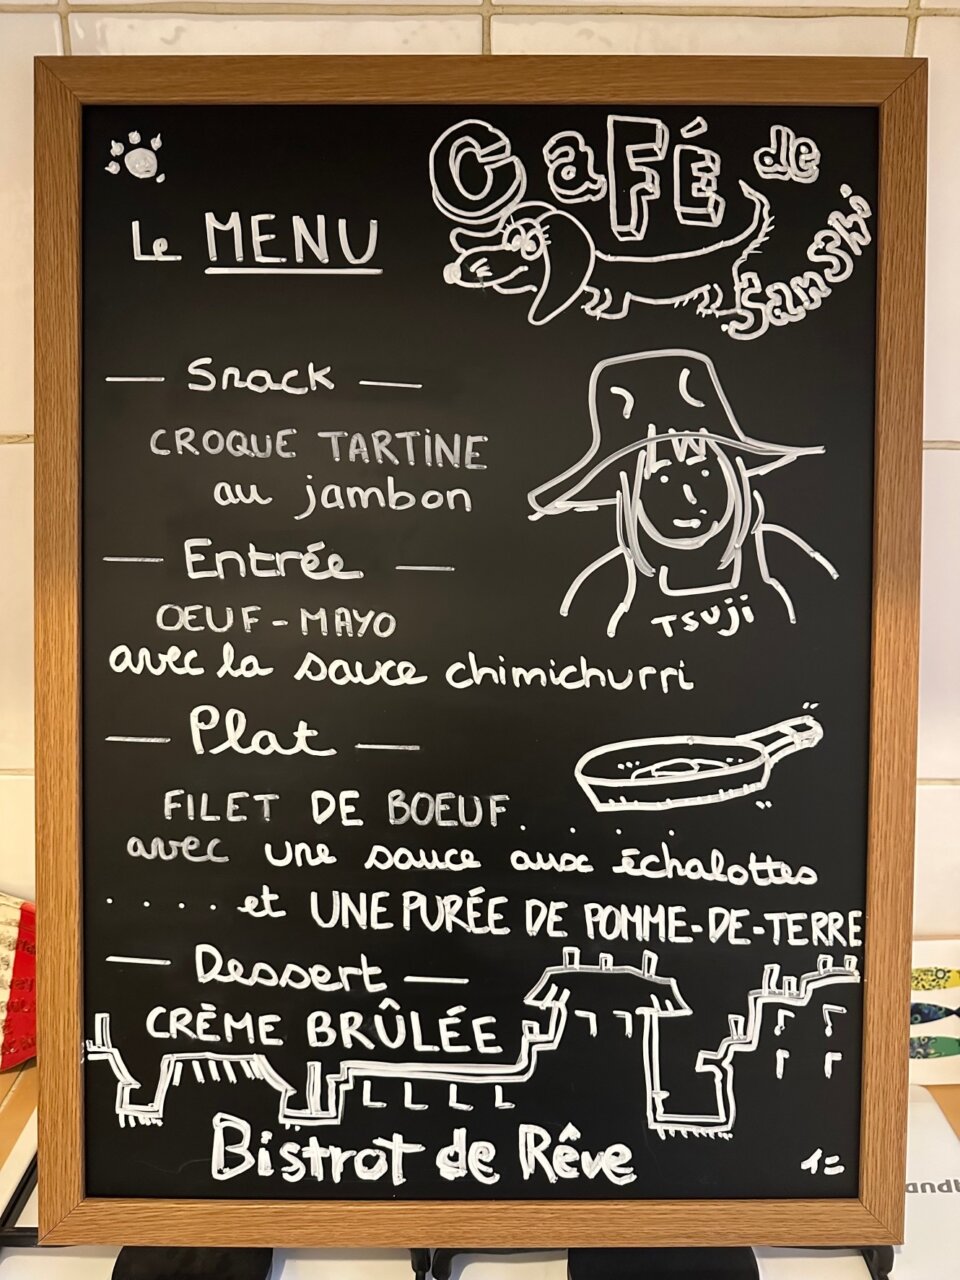 CaFÉ de
Sanshi
Le MENU
Snack
CROQUE TARTINE
au jambon
TSUJI
Entrée
OEUF-MAYO
avec la sauce chimichurri
Plat
FILET DE BOEUF
avec une sauce aux échalottes
.... et UNE PURÉE DE POMME-DE-TERRE
Dessert
CRÈME BRÛLÉE
Bistrot de Rêve